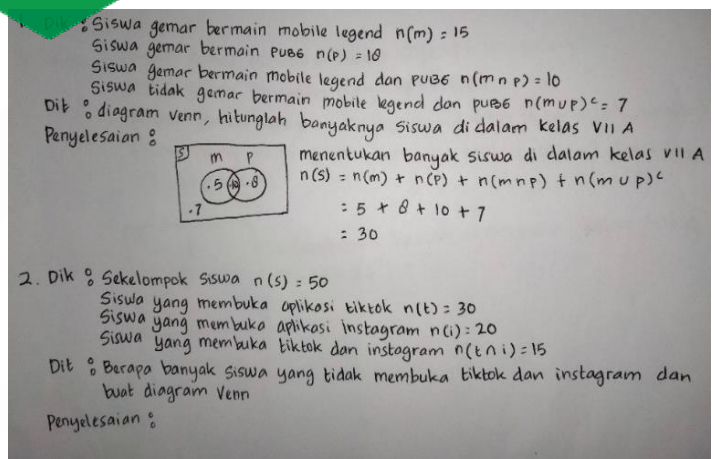 1. Dik : Siswa gemar bermain mobile legend n(m) = 15
Siswa gemar bermain PUBG n(p) = 18
Siswa gemar bermain mobile legend dan PUBG n(m ∩ p) = 10
Siswa tidak gemar bermain mobile legend dan PUBG n(m ∪ p)ᶜ = 7
Dit : diagram Venn, hitunglah banyaknya siswa di dalam kelas VII A
Penyelesaian :
S
m p
.5 10 .8
.7
menentukan banyak siswa di dalam kelas VII A
n(s) = n(m) + n(p) + n(m ∩ p) + n(m ∪ p)ᶜ
= 5 + 8 + 10 + 7
= 30
2. Dik : Sekelompok siswa n(s) = 50
Siswa yang membuka aplikasi tiktok n(t) = 30
Siswa yang membuka aplikasi instagram n(i) = 20
Siswa yang membuka tiktok dan instagram n(t ∩ i) = 15
Dit : Berapa banyak siswa yang tidak membuka tiktok dan instagram dan
buat diagram Venn
Penyelesaian :